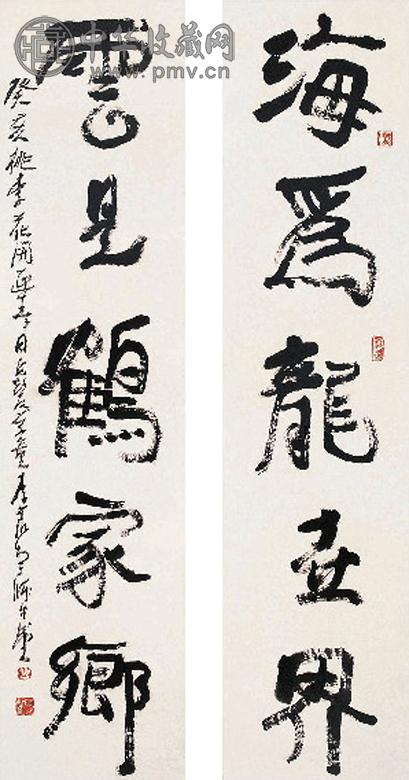 中华收藏网
www.pmv.cn
海爲龍世界
雲是鶴家鄉
癸亥桃李花開